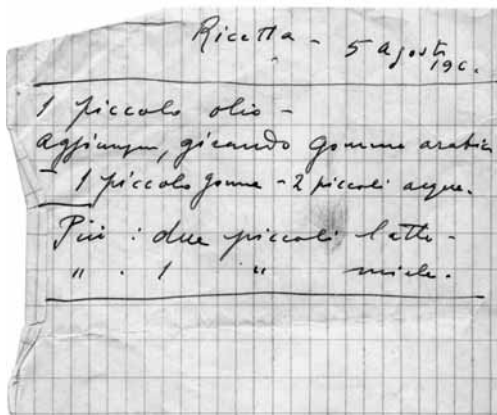 Ricetta - 5 agosto
196.
1 piccolo olio -
aggiungere, girando gomma arabica
- 1 piccolo gomma - 2 piccoli acqua.
Più : due piccoli latte -
" . 1 " miele.